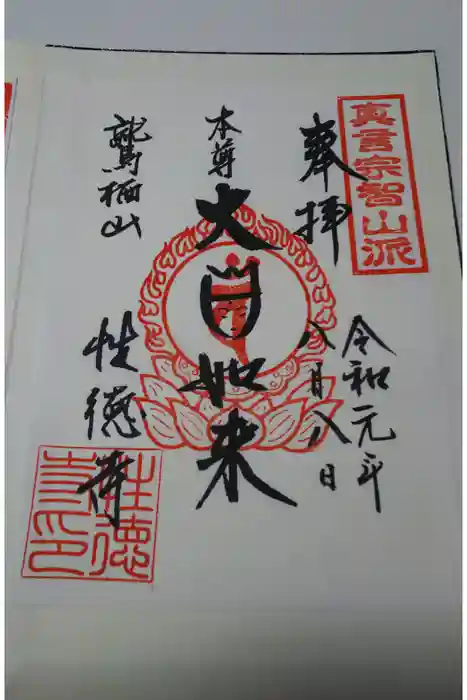 真言宗智山派
奉拝
令和元年
八月八日
本尊
大日如来
鷲栖山
性徳寺
性徳
寺印